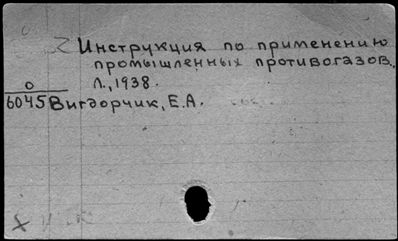 Инструкция по применению
промышленных противогазов.
Л., 1938.
0
6045 Вигдорчик, Е.А.